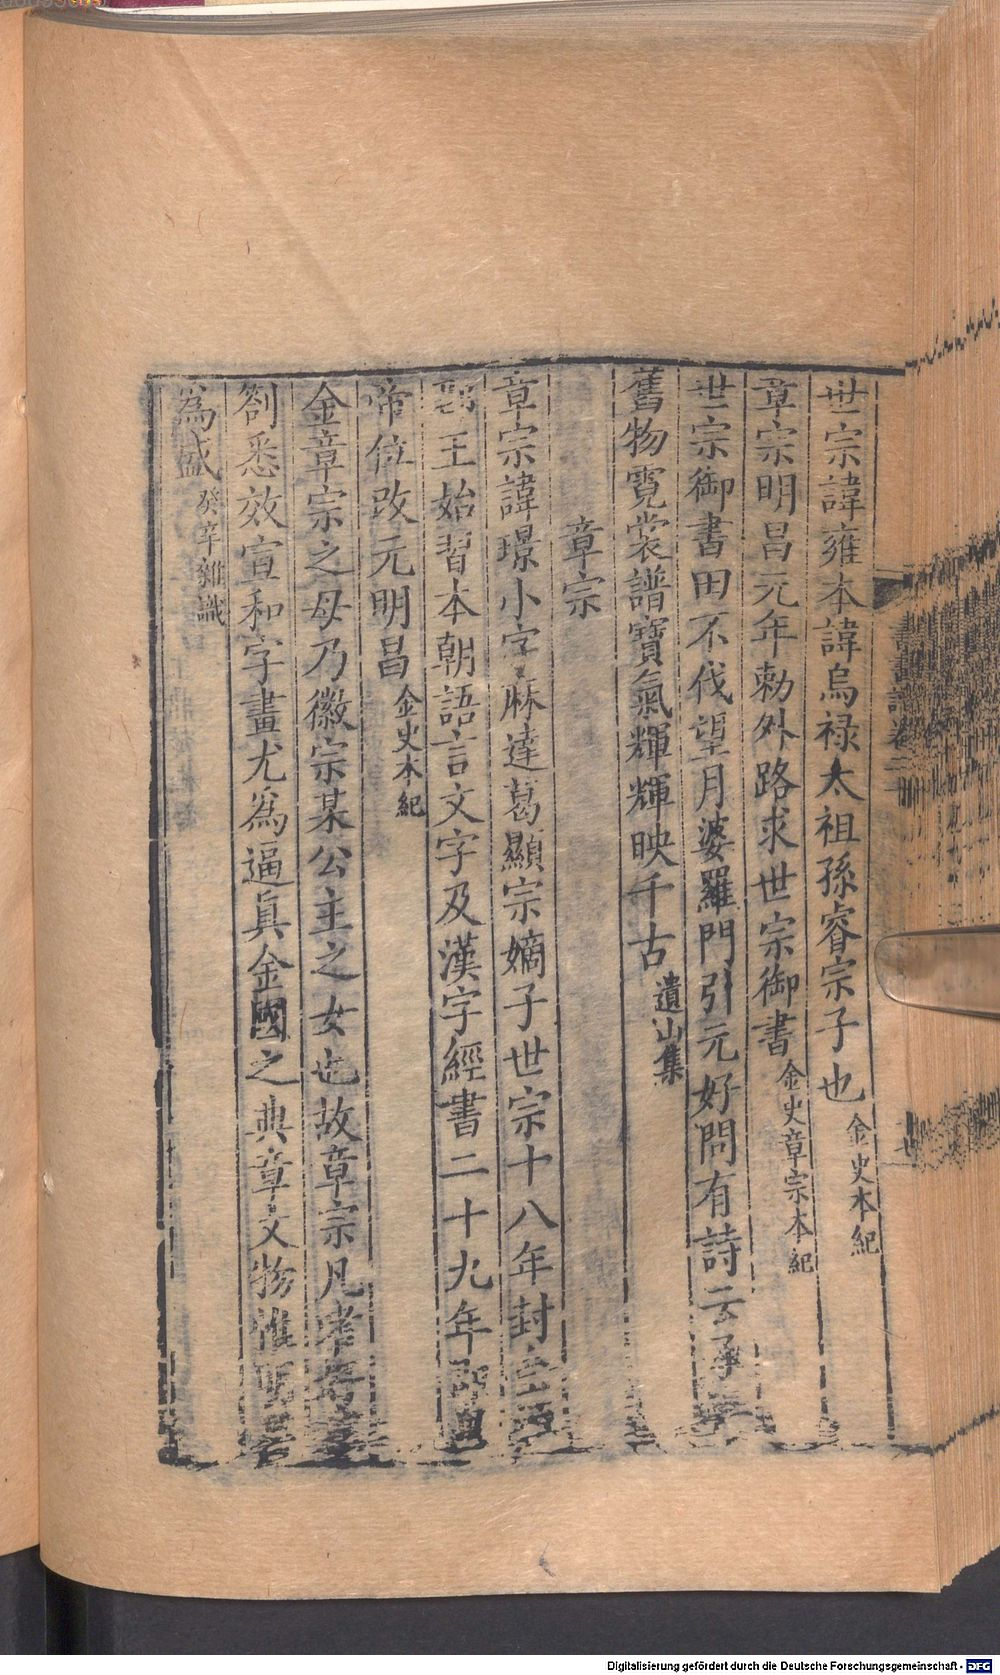 世宗諱雍本諱烏禄太祖孫睿宗子也金史本紀
章宗明昌元年勅外路求世宗御書金史章宗本紀
世宗御書田不伐望月婆羅門引元好問有詩云承
舊物霓裳譜寶氣輝輝映千古遺山集
章宗
章宗諱璟小字麻達葛顯宗嫡子世宗十八年封金
王始習本朝語言文字及漢字經書二十九年即皇
帝位改元明昌金史本紀
金章宗之母乃徽宗某公主之女也故章宗凡嗜好
劄悉效宣和字畫尤爲逼眞金國之典章文物惟明昌
爲盛癸辛雜識
書畫譜卷二
Digitalisierung gefördert durch die Deutsche Forschungsgemeinschaft - DFG